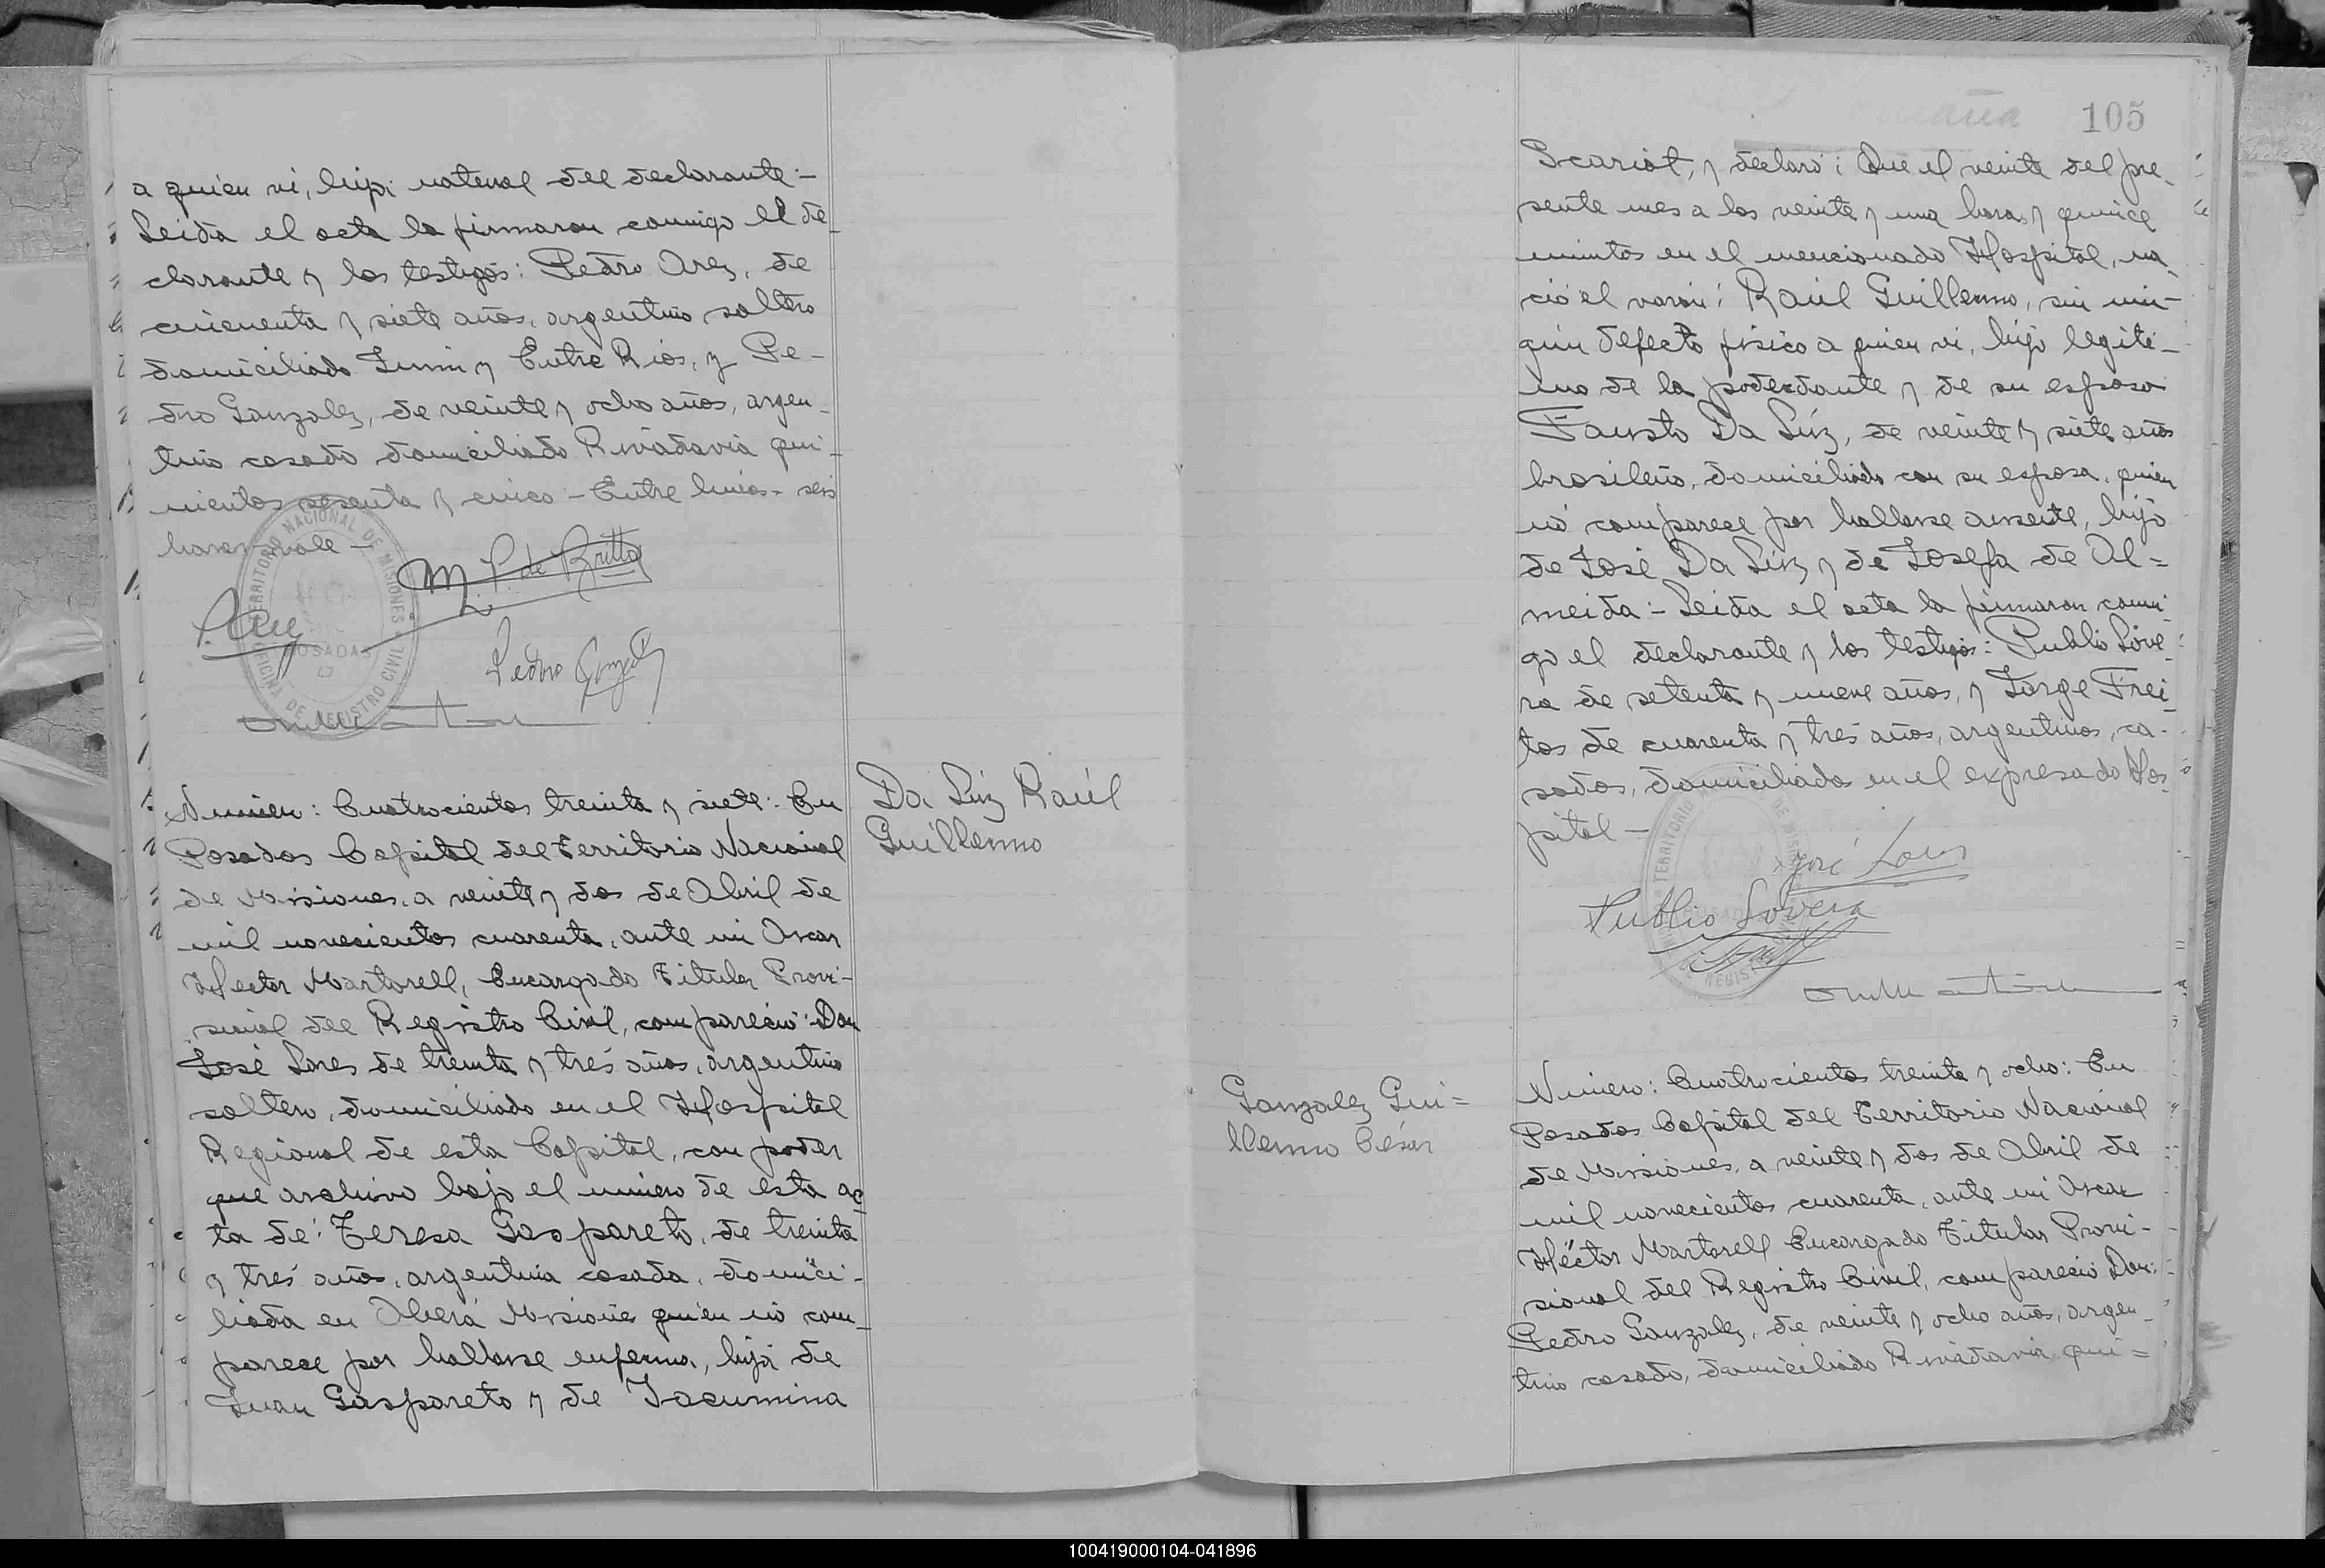 a quien vi, hija natural del declarante:-
Leida el acta la firmaron conmigo el de-
clarante y los testigos: Pedro Arey, de
cincuenta y siete años, argentino soltero
domiciliado Junin y Entre Rios, y Pe-
dro Gonzalez, de veinte y ocho años, argen-
tino casado domiciliado Rivadavia qui-
nientos sesenta y cinco - Entre lineas - seis
horas - vale -
M. P. de Britto
P. Arey
Pedro Gonzalez
TERRITORIO NACIONAL DE MISIONES
POSADAS
OFICINA DE REGISTRO CIVIL
Da Luz Raúl
Guillermo
Número: Cuatrocientos treinta y siete: En
Posadas Capital del Territorio Nacional
de Misiones, a veinte y dos de Abril de
mil novecientos cuarenta, ante mi Oscar
Hector Martorell, Encargado Titular Provi-
sional del Registro Civil, compareció: Don
José Lores de treinta y tres años, argentino
soltero, domiciliado en el Hospital
Regional de esta Capital, con poder
que archivo bajo el número de esta ac
ta de: Teresa Gaspareto, de treinta
y tres años, argentina casada, domici-
liada en Oberá Misiones quien no com-
parece por hallarse enferma, hija de
Juan Gaspareto y de Jacumina
105
Scariot, y declaró: Que el veinte del pre-
sente mes a las veinte y una horas y quince
minutos en el mencionado Hospital, na-
ció el varón: Raúl Guillermo, sin nin-
gún defecto fisico a quien vi, hijo legiti-
mo de la poderdante y de su esposo
Fausto Da Luz, de veinte y siete años
brasileño, domiciliado con su esposa, quien
no comparece por hallarse ausente, hijo
de José Da Luz y de Josefa de Al=
meida:- Leida el acta la firmaron conmi-
go el declarante y los testigos: Publio Love-
ra de setenta y nueve años, y Jorge Frei-
tas de cuarenta y tres años, argentinos, ca-
sados, domiciliados en el expresado Hos-
pital -
José Lores
Publio Lovera
Gonzalez Gui=
llermo César
Número: Cuatrocientos treinta y ocho: En
Posadas Capital del Territorio Nacional
de Misiones, a veinte y dos de Abril de
mil novecientos cuarenta, ante mi Oscar
Héctor Martorell Encargado Titular Provi-
sional del Registro Civil, compareció Don:
Pedro Gonzalez, de veinte y ocho años, argen-
tino casado, domiciliado Rivadavia qui=
100419000104-041896